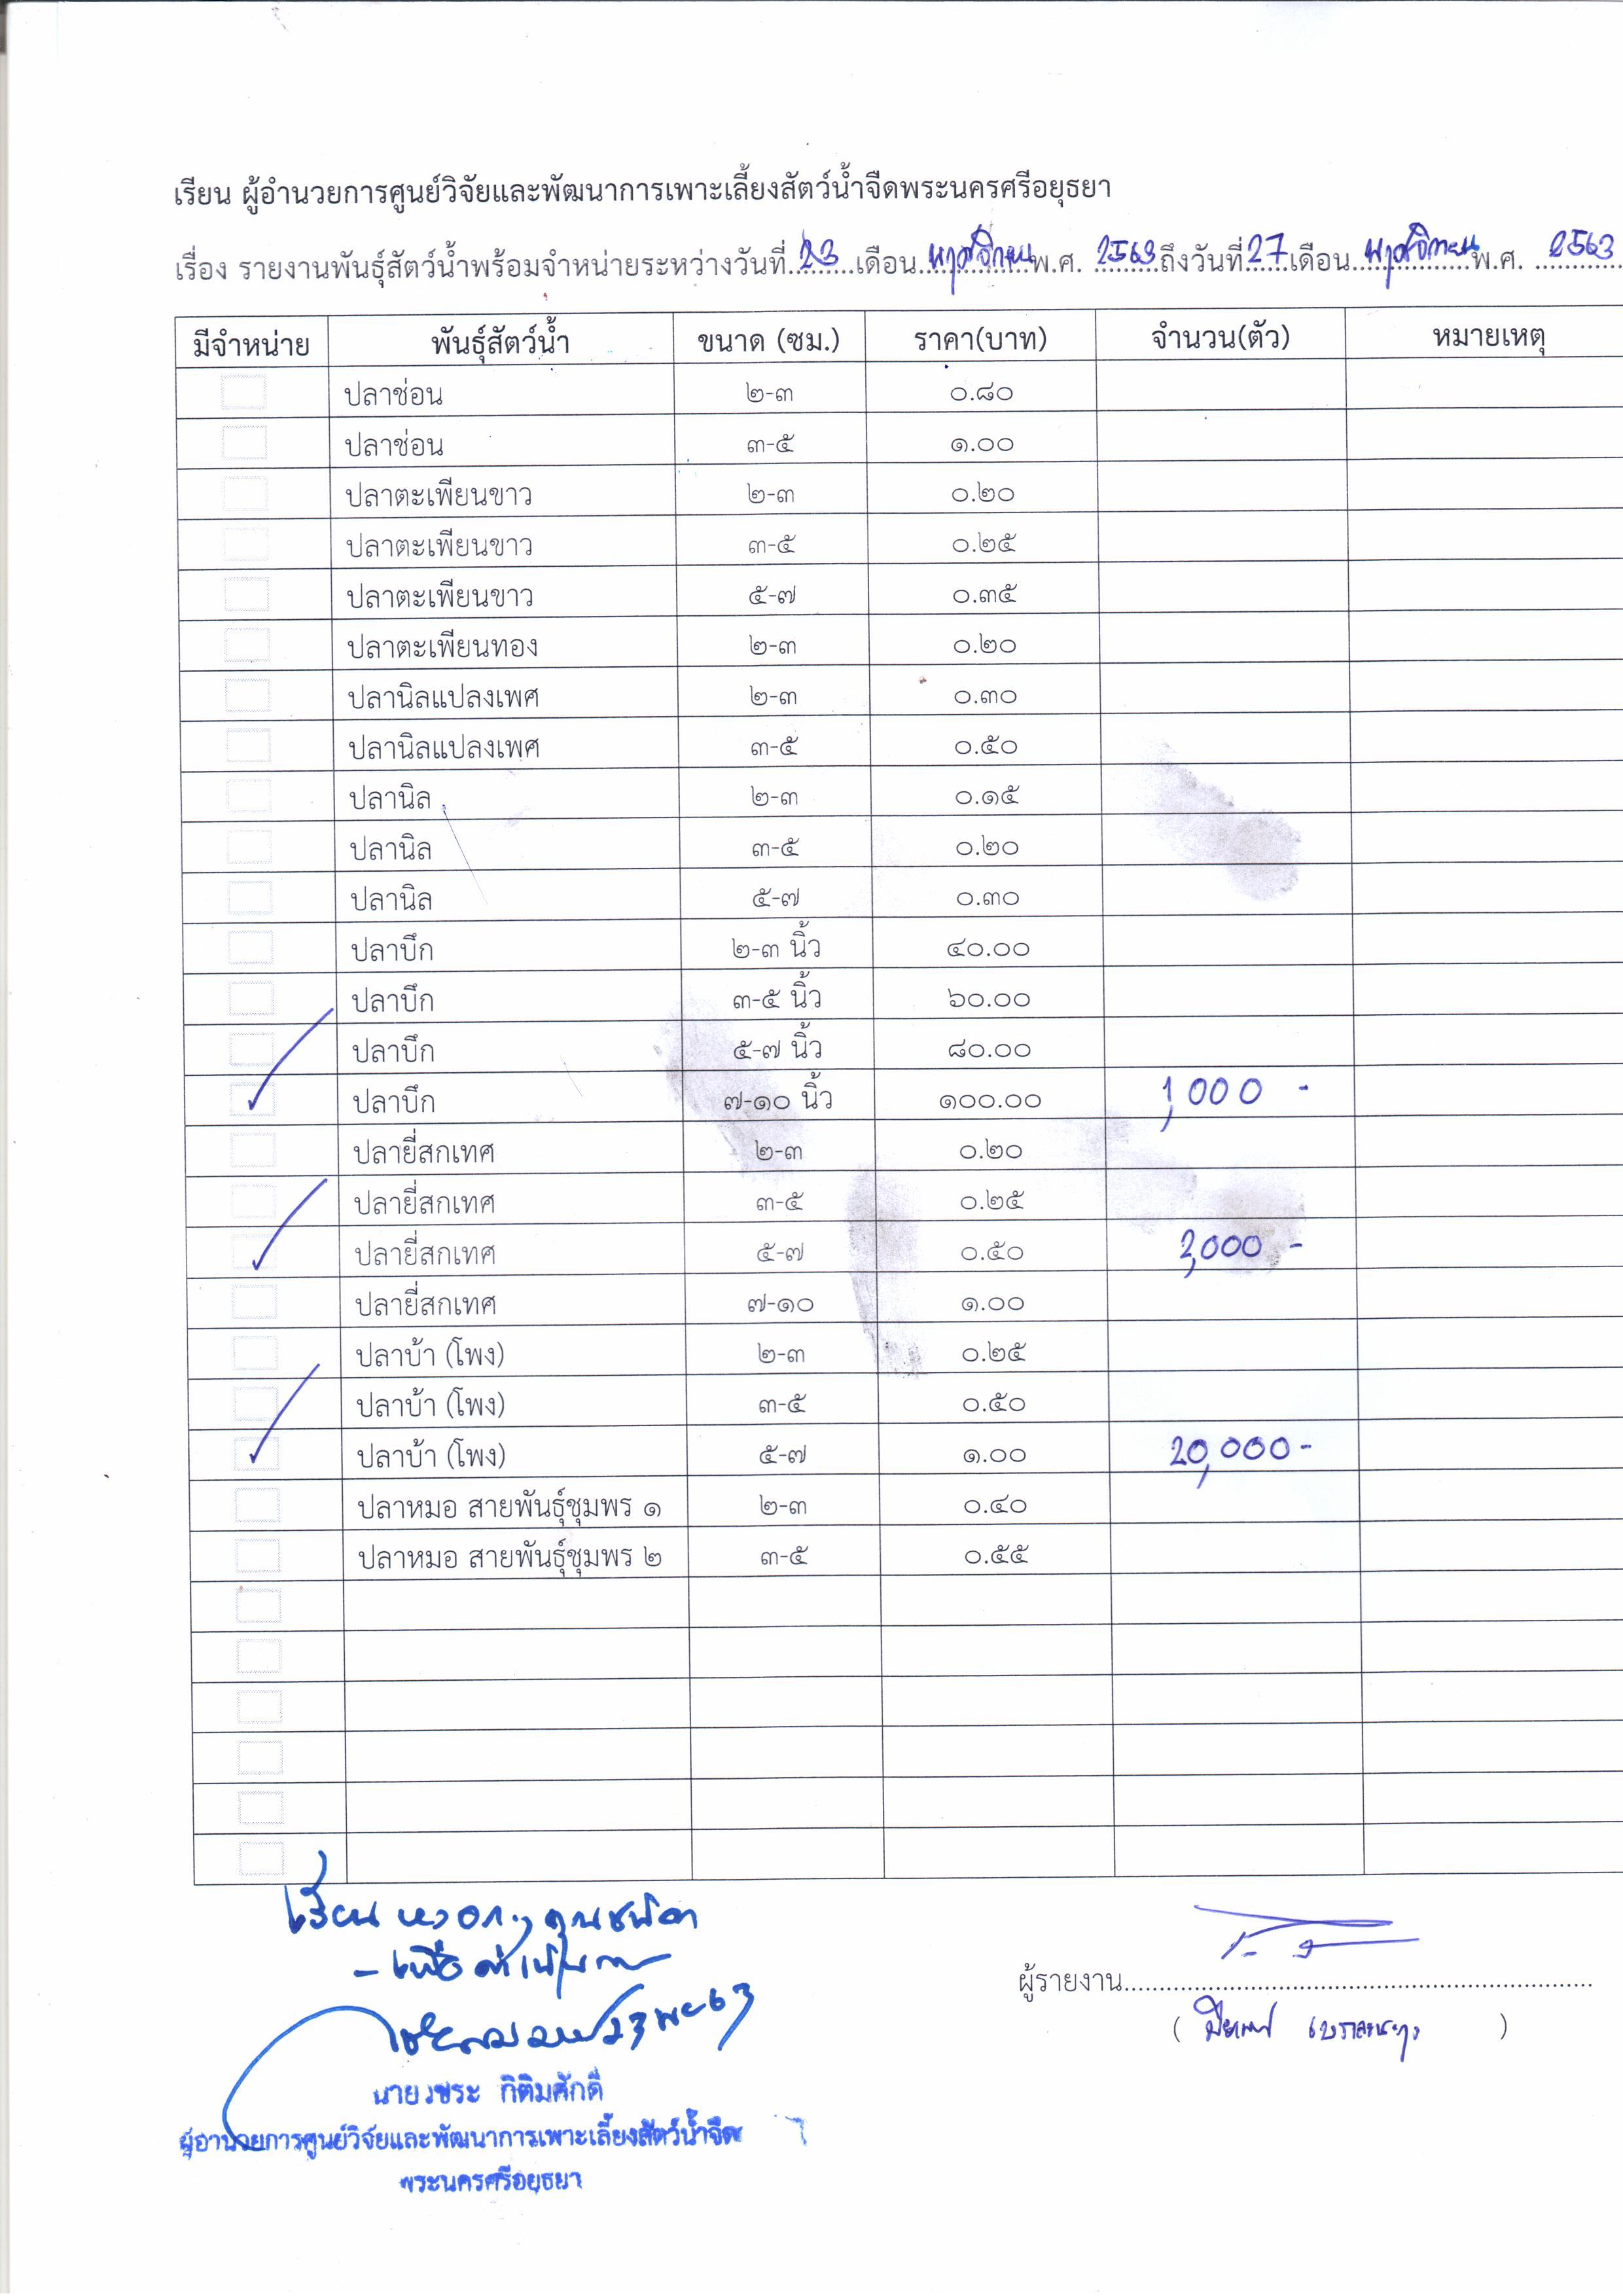 เรียน ผู้อำนวยการศูนย์วิจัยและพัฒนาการเพาะเลี้ยงสัตว์น้ำจืดพระนครศรีอยุธยา
เรื่อง รายงานพันธุ์สัตว์น้ำพร้อมจำหน่ายระหว่างวันที่..23..เดือน..พฤศจิกายน..พ.ศ. ..2563..ถึงวันที่..27..เดือน..พฤศจิกายน..พ.ศ. ..2563..
มีจำหน่าย พันธุ์สัตว์น้ำ ขนาด (ซม.) ราคา(บาท) จำนวน(ตัว) หมายเหตุ
ปลาช่อน ๒-๓ ๐.๘๐
ปลาช่อน ๓-๕ ๑.๐๐
ปลาตะเพียนขาว ๒-๓ ๐.๒๐
ปลาตะเพียนขาว ๓-๕ ๐.๒๕
ปลาตะเพียนขาว ๕-๗ ๐.๓๕
ปลาตะเพียนทอง ๒-๓ ๐.๒๐
ปลานิลแปลงเพศ ๒-๓ ๐.๓๐
ปลานิลแปลงเพศ ๓-๕ ๐.๕๐
ปลานิล ๒-๓ ๐.๑๕
ปลานิล ๓-๕ ๐.๒๐
ปลานิล ๕-๗ ๐.๓๐
ปลาบึก ๒-๓ นิ้ว ๔๐.๐๐
ปลาบึก ๓-๕ นิ้ว ๖๐.๐๐
ปลาบึก ๕-๗ นิ้ว ๘๐.๐๐
✓ ปลาบึก ๗-๑๐ นิ้ว ๑๐๐.๐๐ 1,000 -
ปลายี่สกเทศ ๒-๓ ๐.๒๐
ปลายี่สกเทศ ๓-๕ ๐.๒๕
✓ ปลายี่สกเทศ ๕-๗ ๐.๕๐ 2,000 -
ปลายี่สกเทศ ๗-๑๐ ๑.๐๐
ปลาบ้า (โพง) ๒-๓ ๐.๒๕
ปลาบ้า (โพง) ๓-๕ ๐.๕๐
✓ ปลาบ้า (โพง) ๕-๗ ๑.๐๐ 20,000 -
ปลาหมอ สายพันธุ์ชุมพร ๑ ๒-๓ ๐.๔๐
ปลาหมอ สายพันธุ์ชุมพร ๒ ๓-๕ ๐.๕๕
เรียน
- เพื่อดำเนินการ
23 พย 63
ผู้รายงาน
นายวชระ กิติมศักดิ์
ผู้อำนวยการศูนย์วิจัยและพัฒนาการเพาะเลี้ยงสัตว์น้ำจืด
พระนครศรีอยุธยา